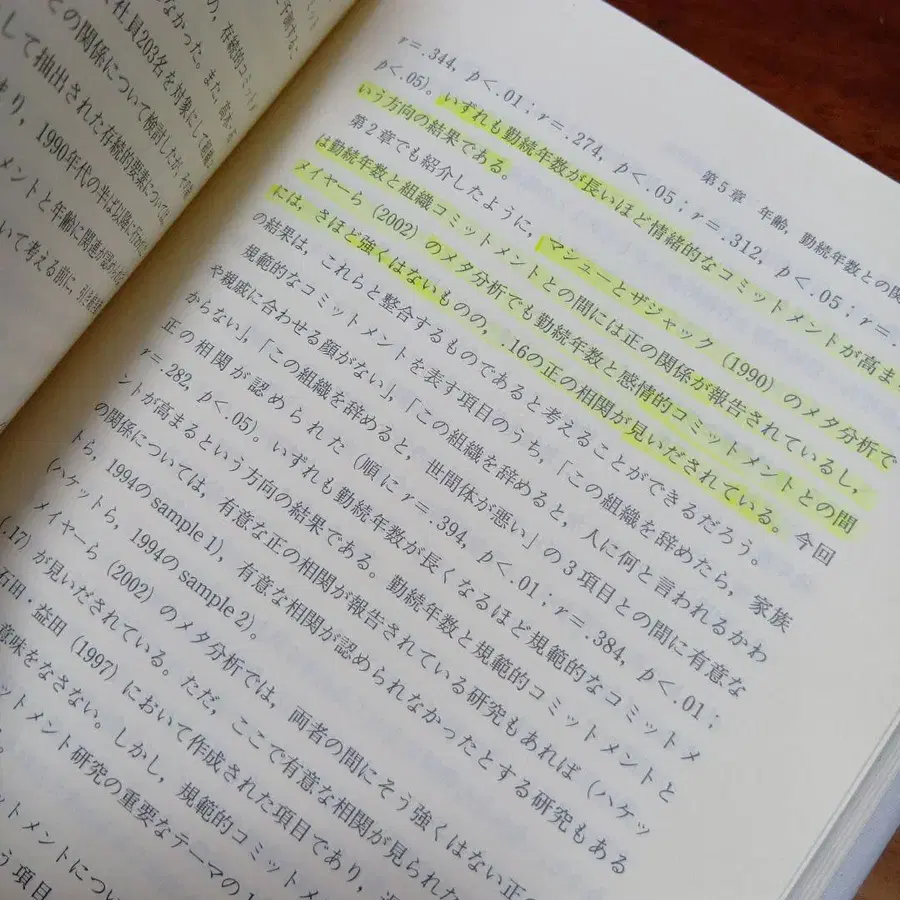 社員203名を対象にして
との関係について検討したが,
して抽出された存続的要素について
1990年代の半ば以降に
メントと年齢に関連が認められ
いて考える前に,
第5章 年齢,勤続年数との関
r=.344, p<.01;r=.274, p<.05;r=.312, p<.05;r=.
p<.05)。いずれも勤続年数が長いほど情緒的なコミットメントが高ま
いう方向の結果である。
第2章でも紹介したように,マシューとザジャック(1990)のメタ分析で
は勤続年数と組織コミットメントとの間には正の関係が報告されているし,
メイヤーら(2002)のメタ分析でも勤続年数と感情的コミットメントとの間
には,さほど強くはないものの,.16の正の相関が見いだされている。今回
の結果は,これらと整合するものであると考えることができるだろう。
規範的なコミットメントを表す項目のうち,「この組織を辞めたら,家族
や親戚に合わせる顔がない」,「この組織を辞めると,人に何と言われるかわ
からない」,「この組織を辞めると,世間体が悪い」の3項目との間に有意な
正の相関が認められた(順にr=.394, p<.01;r=.384, p<.01;
r=.282, p<.05)。いずれも勤続年数が長くなるほど規範的なコミットメ
ントが高まるという方向の結果である。勤続年数と規範的コミットメントと
の関係については,有意な正の相関が報告されている研究もあれば(ハケッ
トら,1994のsample 1),有意な相関が認められなかったとする研究もある
(ハケットら,1994のsample 2)。
メイヤーら(2002)のメタ分析では,両者の間にそう強くはない正の
.17)が見いだされている。ただ,ここで有意な相関が見られた
石田・益田(1997)において作成された項目であり,
意味をなさない。しかし,規範的コミットメ
ットメント研究の重要なテーマの1
ットメントについ
う項目